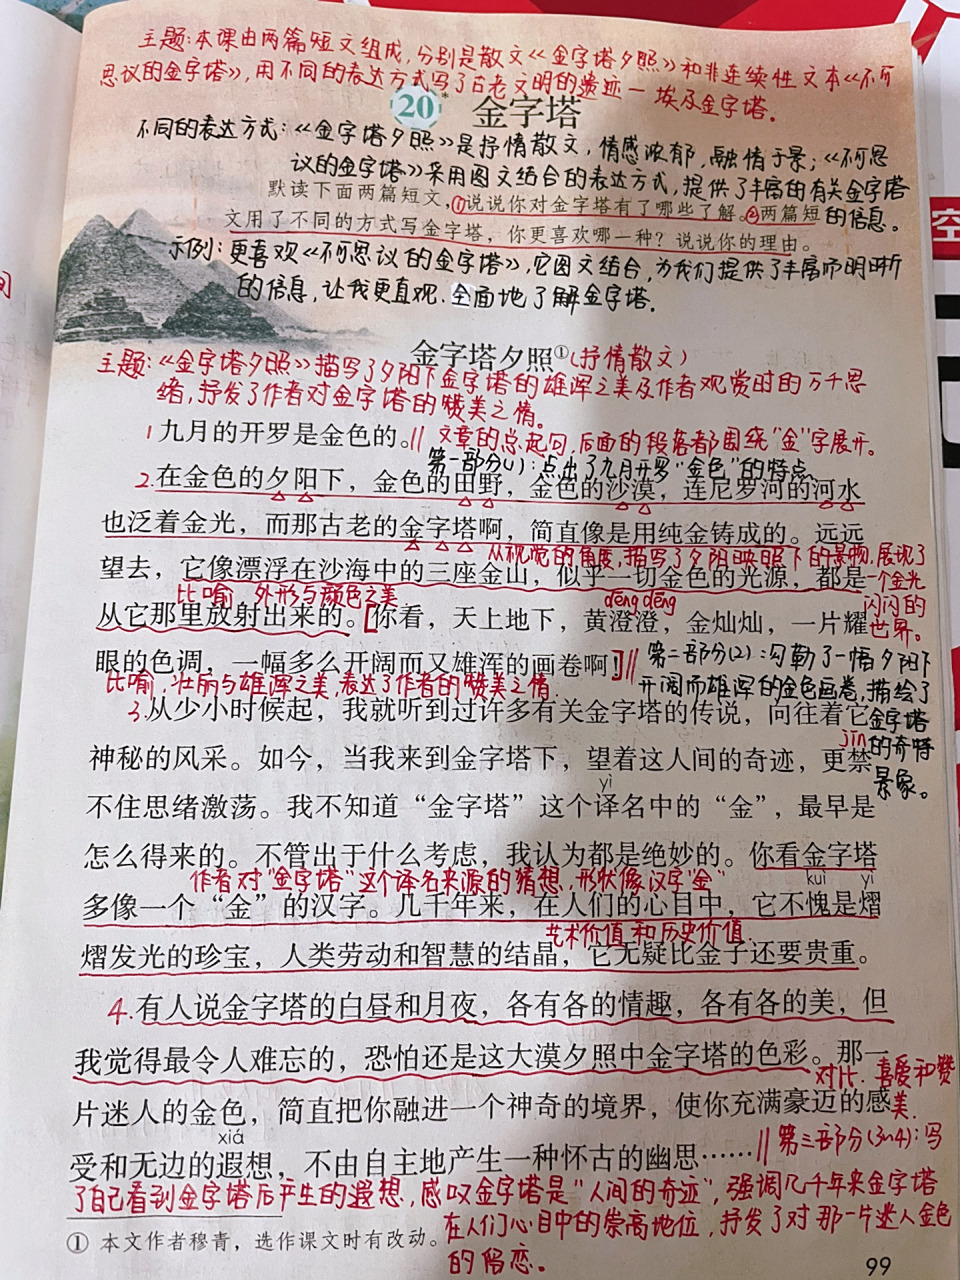 主题:本课由两篇短文组成,分别是散文《金字塔夕照》和非连续性文本《不可
思议的金字塔》,用不同的表达方式写了古老文明的遗迹—埃及金字塔。
20* 金字塔
不同的表达方式:《金字塔夕照》是抒情散文,情感浓郁,融情于景;《不可思
议的金字塔》采用图文结合的表达方式,提供了丰富的有关金字塔
的信息。
默读下面两篇短文,①说说你对金字塔有了哪些了解。②两篇短
文用了不同的方式写金字塔,你更喜欢哪一种?说说你的理由。
示例:更喜欢《不可思议的金字塔》,它图文结合,为我们提供了丰富而明晰
的信息,让我更直观、全面地了解金字塔。
金字塔夕照①(抒情散文)
主题:《金字塔夕照》描写了夕阳下金字塔的雄浑之美及作者观赏时的万千思
绪,抒发了作者对金字塔的赞美之情。
1九月的开罗是金色的。// 文章的总起句,后面的段落都围绕“金”字展开。
第一部分(1):点出了九月开罗“金色”的特点。
2.在金色的夕阳下,金色的田野,金色的沙漠,连尼罗河的河水
也泛着金光,而那古老的金字塔啊,简直像是用纯金铸成的。远远
从视觉的角度,描写了夕阳映照下的景物,展现了
一个金光
闪闪的
世界。
望去,它像漂浮在沙海中的三座金山,似乎一切金色的光源,都是
比喻 外形与颜色之美
dēng dēng
从它那里放射出来的。[你看,天上地下,黄澄澄,金灿灿,一片耀
眼的色调,一幅多么开阔而又雄浑的画卷啊!]//
第二部分(2):勾勒了一幅夕阳下
开阔而雄浑的金色画卷,描绘了
金字塔
的奇特
景象。
比喻,壮丽与雄浑之美,表达了作者的赞美之情.
3.从少小时候起,我就听到过许多有关金字塔的传说,向往着它
jīn
神秘的风采。如今,当我来到金字塔下,望着这人间的奇迹,更禁
yì
不住思绪激荡。我不知道“金字塔”这个译名中的“金”,最早是
怎么得来的。不管出于什么考虑,我认为都是绝妙的。你看金字塔
作者对“金字塔”这个译名来源的猜想,形状像汉字“金”
kuì yì
多像一个“金”的汉字。几千年来,在人们的心目中,它不愧是熠
艺术价值和历史价值.
熠发光的珍宝,人类劳动和智慧的结晶,它无疑比金子还要贵重。
4.有人说金字塔的白昼和月夜,各有各的情趣,各有各的美,但
我觉得最令人难忘的,恐怕还是这大漠夕照中金字塔的色彩。那一
对比. 喜爱和赞
美.
片迷人的金色,简直把你融进一个神奇的境界,使你充满豪迈的感
xiá
受和无边的遐想,不由自主地产生一种怀古的幽思……// 第三部分(3~4):写
了自己看到金字塔后产生的遐想,感叹金字塔是“人间的奇迹”,强调几千年来金字塔
在人们心目中的崇高地位,抒发了对那一片迷人金色
的留恋。
① 本文作者穆青,选作课文时有改动。
99
空